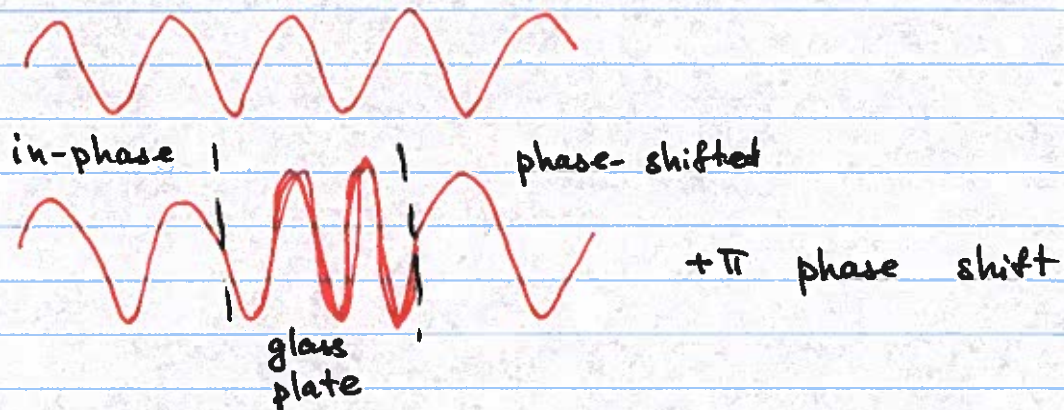 in-phase
phase-shifted
+π phase shift
glass
plate